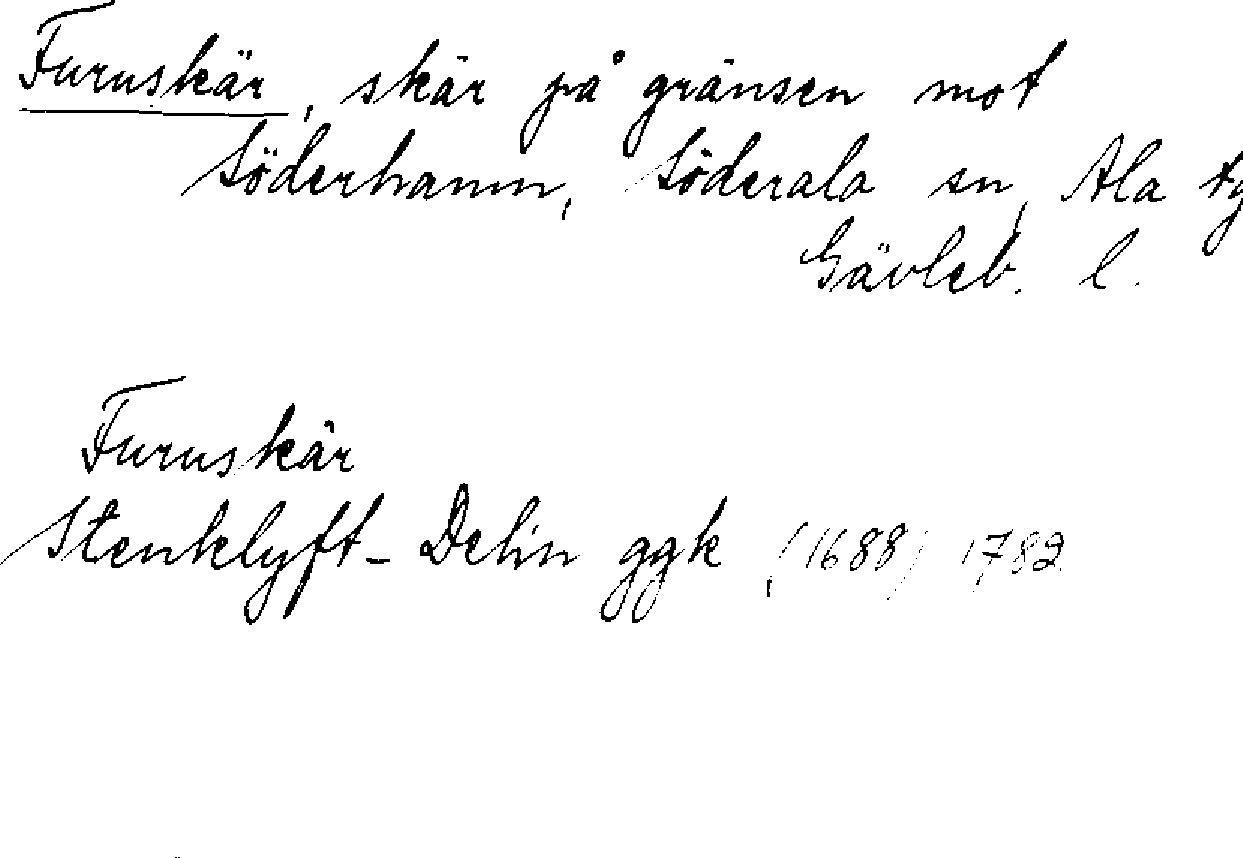 Furuskär, skär på gränsen mot
Söderhamn, Söderala sn, Ala tg
Gävleb. l.
Furuskär
Stenklyft-Delin ggk (1688) 1782